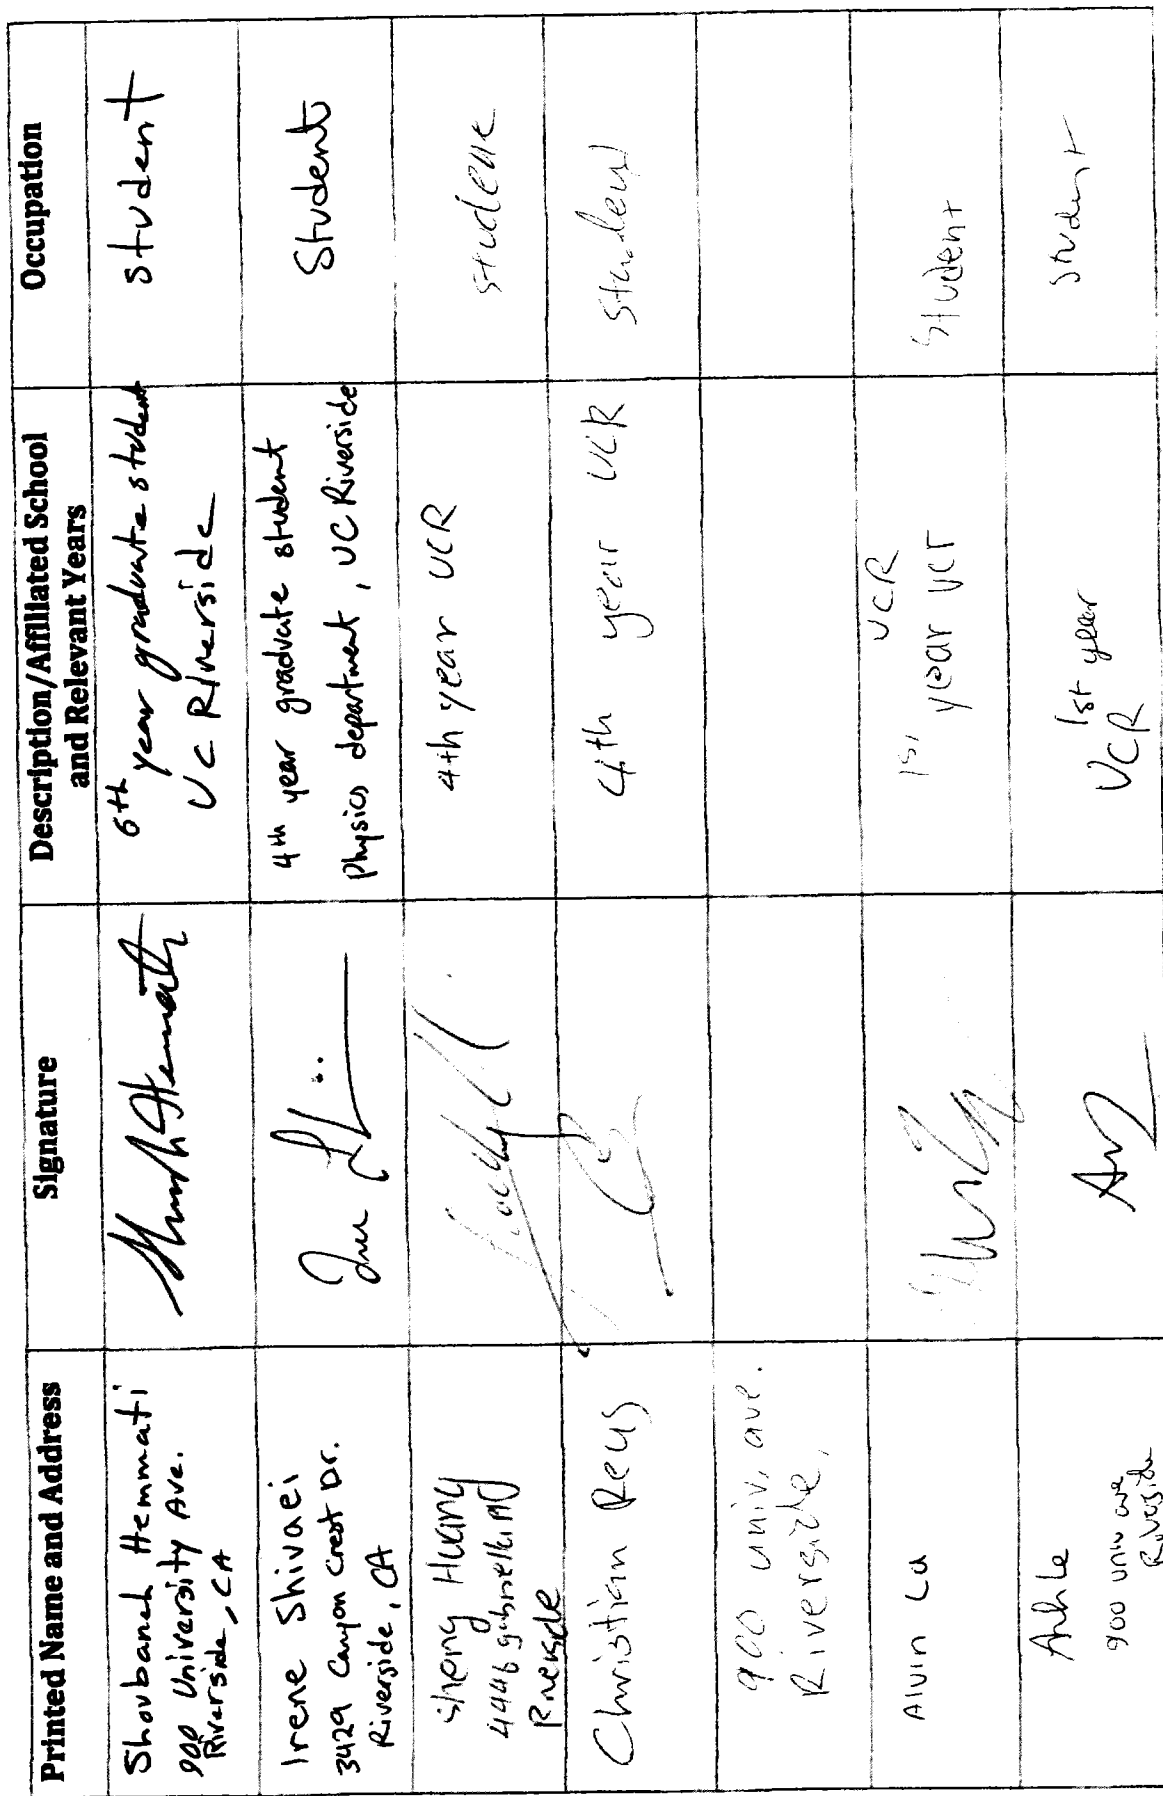 Printed Name and Address
Signature
Description/Affiliated School
and Relevant Years
Occupation
Shoubaneh Hemmati
900 University Ave.
Riverside, CA
6th year graduate student
UC Riverside
student
Irene Shivaei
3429 Canyon Crest Dr.
Riverside, CA
4th year graduate student
Physics department, UC Riverside
Student
Sheng Huang
4446
4th year UCR
student
Christian Reus
4th year UCR
student
900 univ. ave.
Riverside,
Alvin Lu
UCR
1st year UCR
Student
Anh Le
900 univ ave
Riverside
1st year
UCR
student